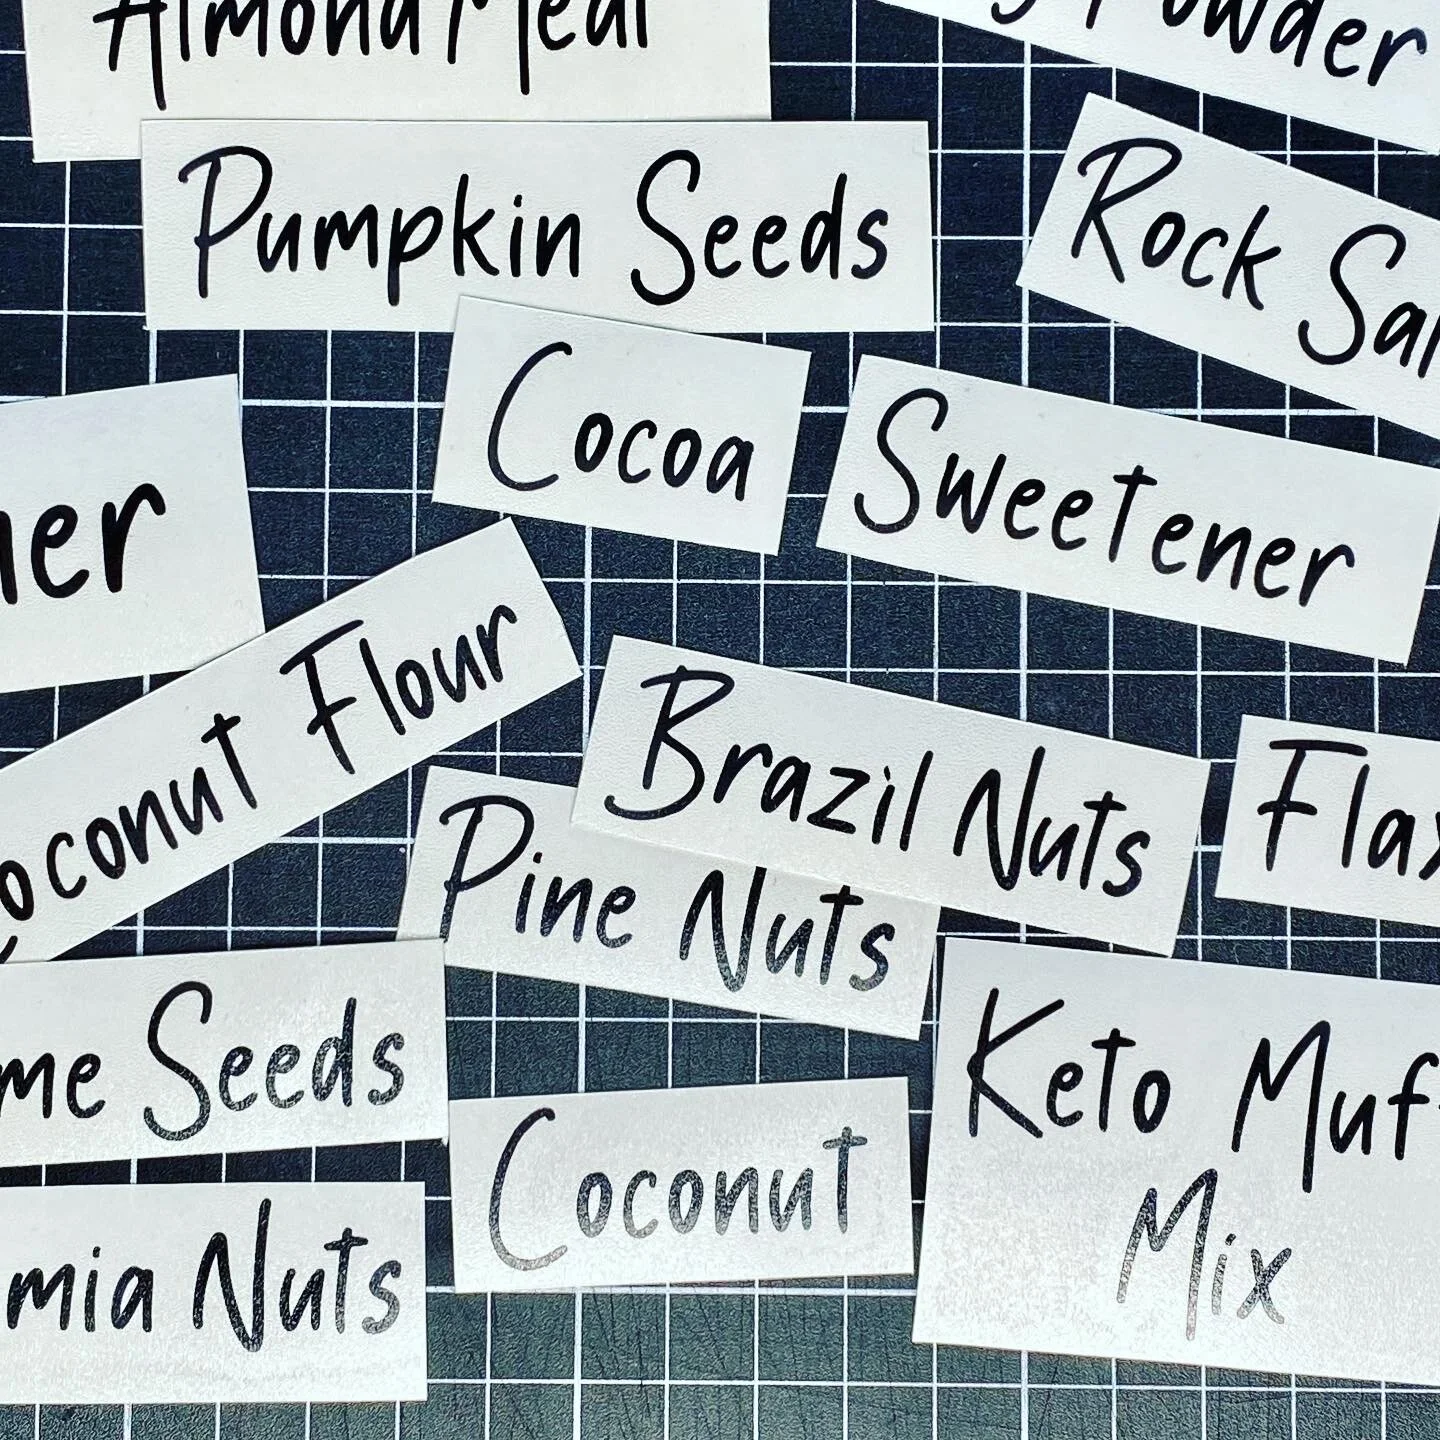 Almond Meal
Powder
Pumpkin Seeds
Rock Sal
Cocoa
Sweetener
er
Coconut Flour
Brazil Nuts
Flax
Pine Nuts
me Seeds
Keto Muf
Mix
Coconut
mia Nuts